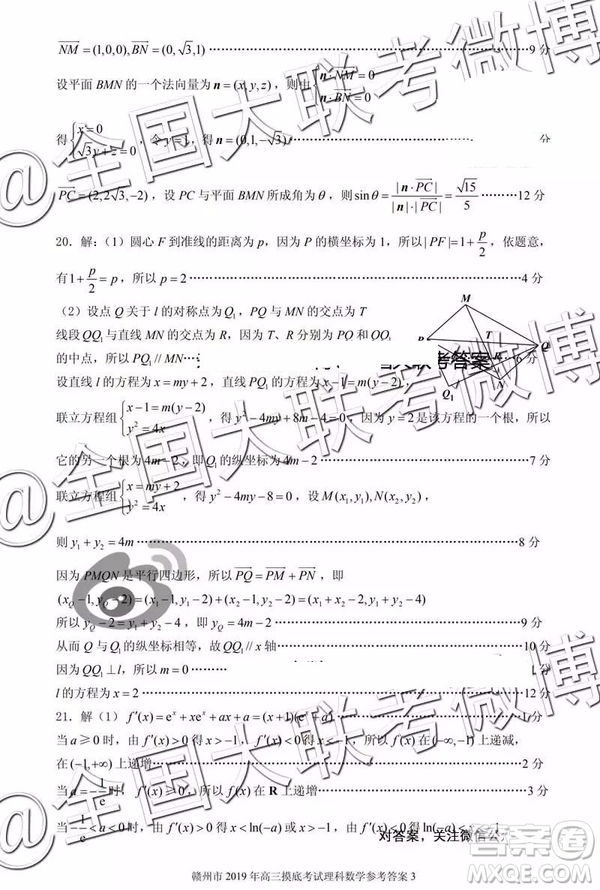 NM=(1,0,0), BN=(0,√3,1) ………… 9 分
设平面 BMN 的一个法向量为 n=(x,y,z), 则由{n·NM=0 n·BN=0
得{x=0 √3y+z=0, 令 y=1, 得 n=(0,1,-√3) 分
PC=(2,2√3,-2), 设 PC 与平面 BMN 所成角为θ, 则 sinθ=|n·PC|/|n|·|PC|=√15/5 ………12 分
20. 解:(1) 圆心 F 到准线的距离为 p, 因为 P 的横坐标为 1, 所以|PF|=1+p/2, 依题意,
有1+p/2=p, 所以 p=2 ………… 4 分
(2) 设点 Q 关于 l 的对称点为Q₁, PQ 与 MN 的交点为 T
线段QQ₁与直线 MN 的交点为 R, 因为 T、R 分别为 PQ 和 QQ₁
的中点, 所以 PQ₁ // MN… 6 分
M
T
Q
Q₁
设直线 l 的方程为 x=my+2, 直线 PQ₁ 的方程为 x-1=m(y-2)
联立方程组{x-1=m(y-2) y²=4x, 得 y²-4my+8m-4=0, 因为 2 是该方程的一个根, 所以
它的另一个根为 4m-2, 即Q₁ 的纵坐标为 4m-2 ………… 7 分
联立方程组{x=my+2 y²=4x, 得 y²-4my-8=0, 设 M(x₁,y₁),N(x₂,y₂),
则 y₁+y₂=4m ………… 8 分
因为 PMQN 是平行四边形, 所以 PQ=PM+PN, 即
(x_Q-1,y_Q-2)=(x₁-1,y₁-2)+(x₂-1,y₂-2)
所以 y_Q-2=y₁+y₂-4, 即 y_Q=4m-2 ………… 9 分
从而 Q 与 Q₁ 的纵坐标相等, 故 QQ₁ // x 轴 ………… 10 分
因为 QQ₁⊥l, 所以 m=0 ………… 分
l 的方程为 x=2 ………… 12 分
21. 解 (1) f′(x)=eˣ+xeˣ+ax+a=(x+1)(eˣ+a) ………… 1分
当 a≥0 时, 由 f′(x)>0 得 x>-1, f′(x)<0 得 x<-1, 所以 f(x) 在 (-∞,-1) 上递减,
在 (-1,+∞) 上递增 ………… 2 分
当 a=-1/e 时, f′(x)≥0, 所以 f(x) 在 R 上递增 ………… 3 分
当 -1/e<a<0 时, 由 f′(x)>0 得 x<ln(-a) 或 x>-1, 由 f′(x)<0 得 ln(-a)<x<-1
对答案,关注微信公
赣州市 2019 年高三摸底考试理科数学参考答案 3
@全国大联考微博